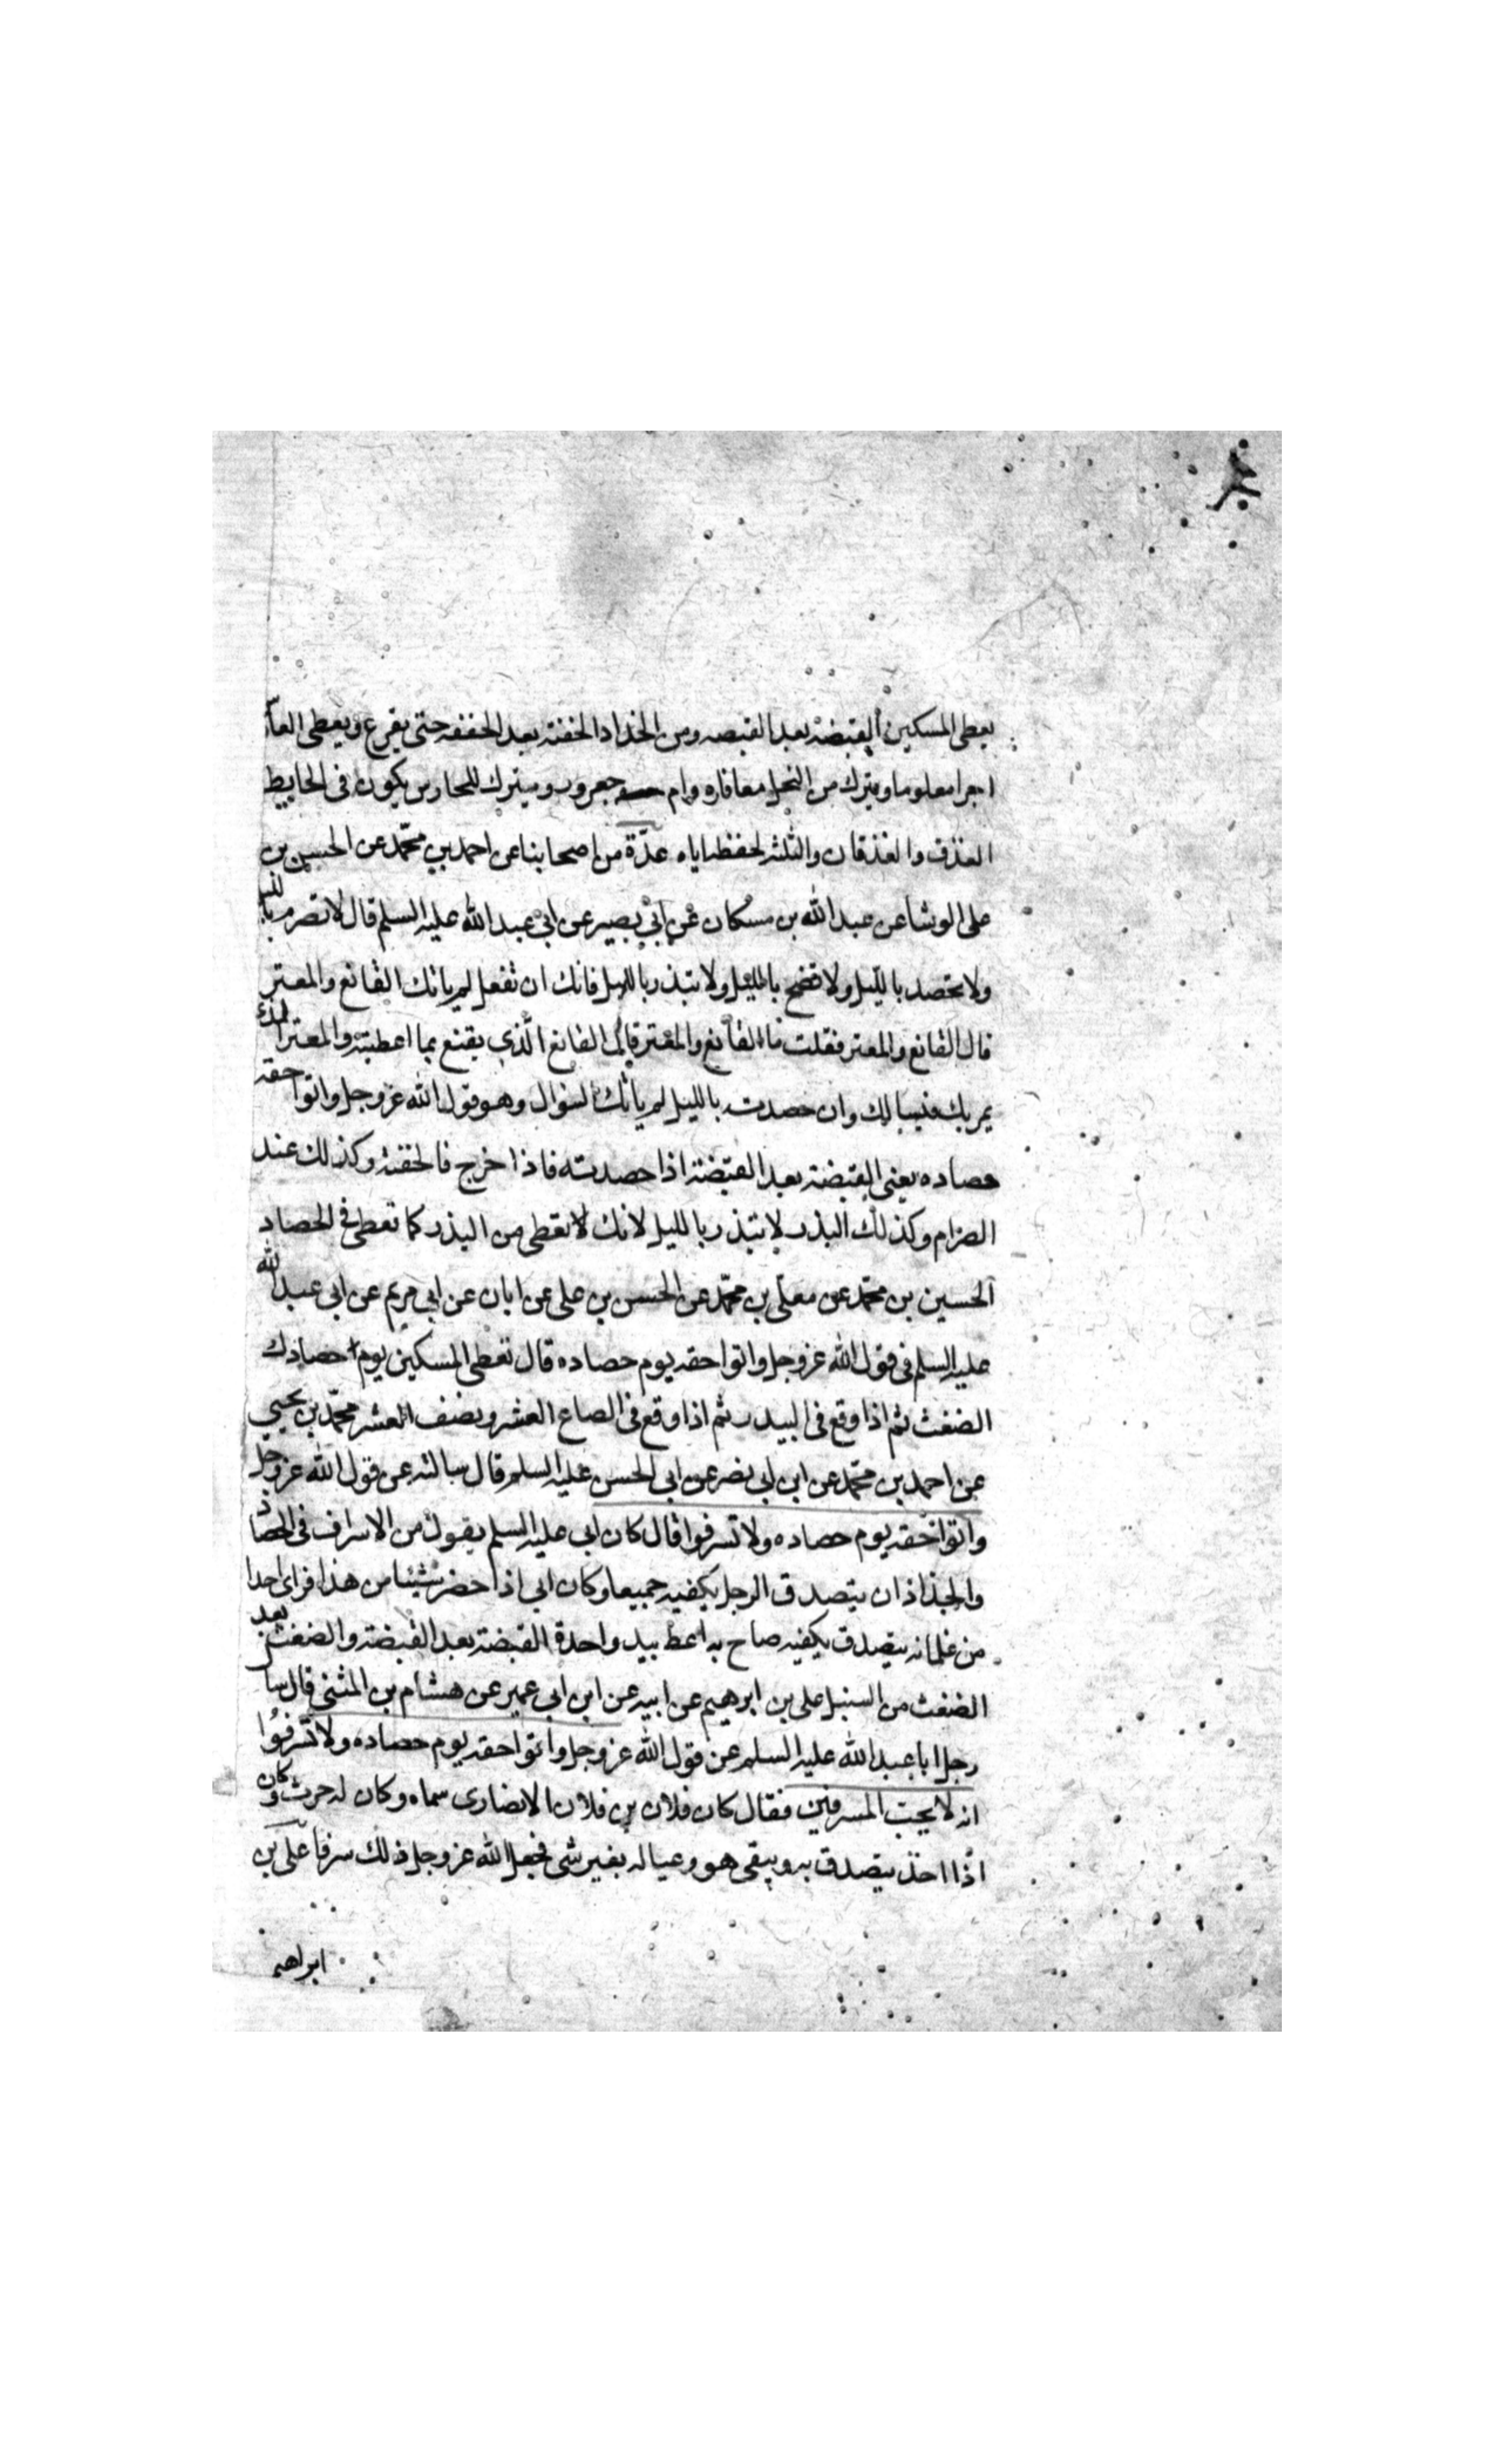 يعطى المسكين القبضة بعد القبضه ومن الجذاذ الحفنة بعد الحفنه حتى يفرغ ويعطى الحارس
اجرا معلوما ويترك من النخل معافاره وام جعرور ويترك للحارس يكون فى الحايط
العذق والعذقان والثلثه لحفظه اياه عدّة من اصحابنا عن احمد بن محمّد عن الحسن بن
على الوشا عن عبد الله بن مسكان عن ابى بصير عن ابى عبد الله عليه السلم قال لا تصرم بالليل
ولا تحصد بالليل ولا تضح بالليل ولا تبذر بالليل فانك ان تفعل لم ياتك القانع والمعتر
قال القانع والمعتر فقلت ما القانع والمعتر قال القانع الذى يقنع بما اعطيته والمعتر الذى
يمر بك فيسالك وان حصدت بالليل لم ياتك السؤال وهو قول الله عز وجل واتوا حقه
حصاده يعنى القبضة بعد القبضة اذا حصدته فاذا خرج فالحفنة وكذلك عند
الصرام وكذلك البذر لا تبذر بالليل لانك لا تعطى من البذر كما تعطى فى الحصاد
الحسين بن محمّد عن معلّى بن محمّد عن الحسن بن على عن ابان عن ابى مريم عن ابى عبد الله
عليه السلم فى قول الله عز وجل واتوا حقه يوم حصاده قال تعطى المسكين يوم حصادك
الضغث ثم اذا وقع فى البيدر ثم اذا وقع فى الصاع العشر ونصف العشر محمّد بن يحيى
عن احمد بن محمّد عن ابن ابى نصر عن ابى الحسن عليه السلم قال سالته عن قول الله عز وجل
واتوا حقه يوم حصاده ولا تسرفوا قال كان ابى عليه السلم يقول من الاسراف فى الحصاد
والجذاذ ان يتصدق الرجل بكفيه جميعا وكان ابى اذا حضر شيئا من هذا فراى احدا
من غلمانه يتصدق بكفيه صاح به اعط بيد واحدة القبضة بعد القبضة والضغث بعد
الضغث من السنبل على بن ابرهيم عن ابيه عن ابن ابى عمير عن هشام بن المثنى قال سا
رجل ابا عبد الله عليه السلم عن قول الله عز وجل واتوا حقه يوم حصاده ولا تسرفوا
انه لا يحب المسرفين فقال كان فلان بن فلان الانصارى سماه وكان له حرث وكان
اذا اخذ يتصدق به ويبقى هو وعياله بغير شى فجعل الله عز وجل ذلك سرفا على بن
ابراهيم